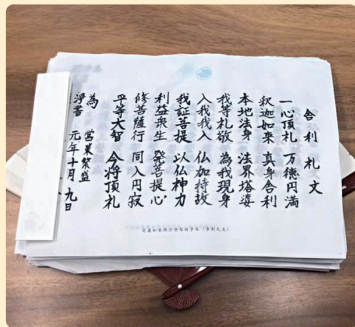 舎利礼文
一心頂礼　万徳円満
釈迦如来　真身舎利
本地法身　法界塔婆
我等礼敬　為我現身
入我我入　仏加持故
我証菩提　以仏神力
利益衆生　発菩提心
修菩薩行　同入円寂
平等大智　今将頂礼
為　営業繁盛
浄書　元年十月　九日